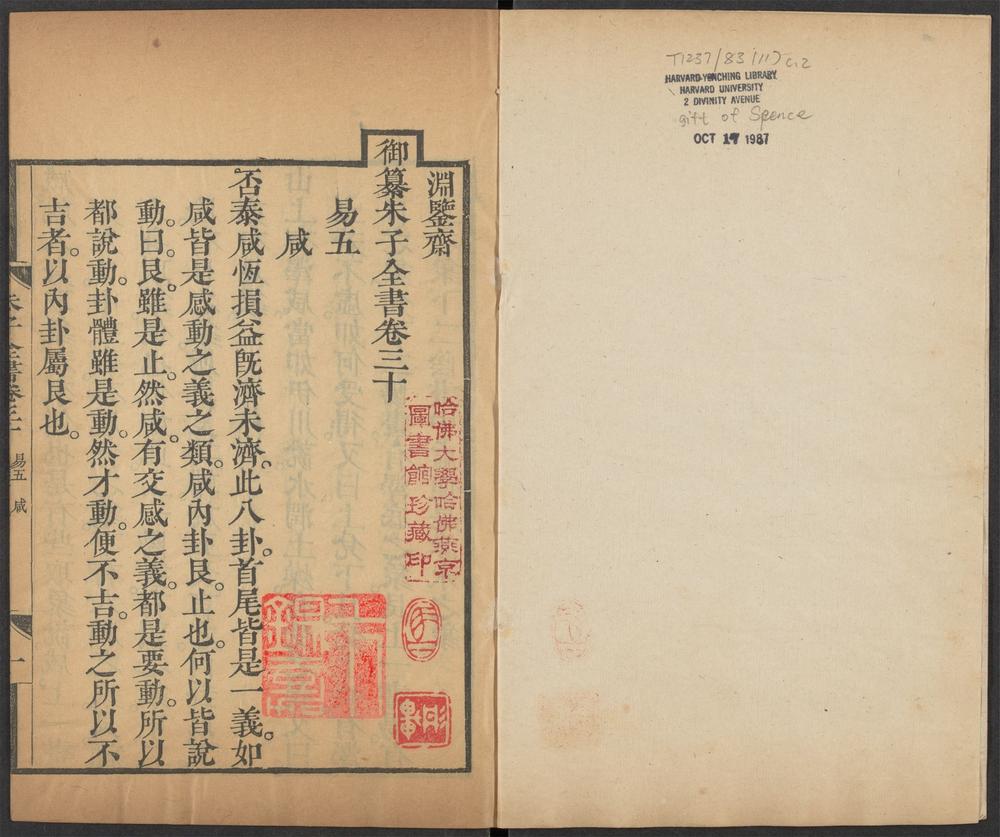 T1237/83 (11) c.2
HARVARD-YENCHING LIBRARY
HARVARD UNIVERSITY
2 DIVINITY AVENUE
gift of Spence
OCT 17 1987
淵鑒齋
御纂朱子全書卷三十
易五
咸
否泰咸恆損益旣濟未濟此八卦首尾皆是一義如
咸皆是感動之義之類。咸內卦艮。止也。何以皆說
動。曰。艮。雖是止。然咸有交感之義。都是要動。所以
都說動。卦體雖是動。然才動。便不吉。動之所以不
吉者。以內卦屬艮也。
易五 咸
一
哈佛大學哈佛燕京
圖書館珍藏印